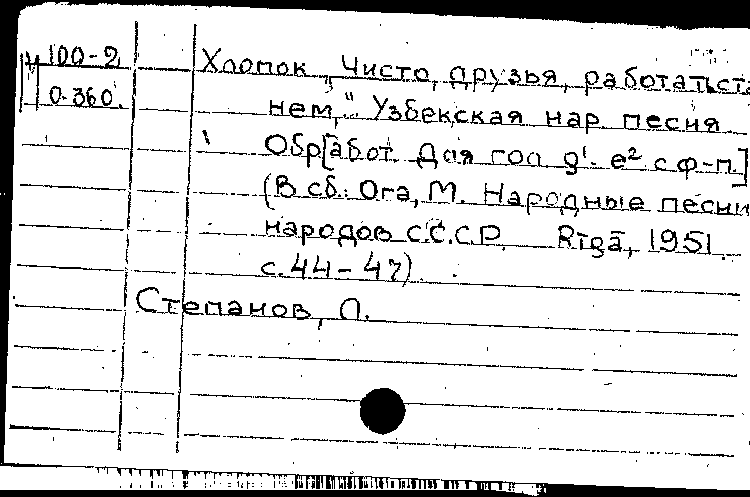 Ч 100-2 Хлопок „Чисто, друзья, работать ста
0-360. нем," Узбекская нар. песня
Обр[абот. Для гол g¹- e² с ф-п.]
(В сб.: Ога, М. Народные песни
народов С.С.С.Р. Rīgā, 1951
с. 44-47).
Степанов, Л.